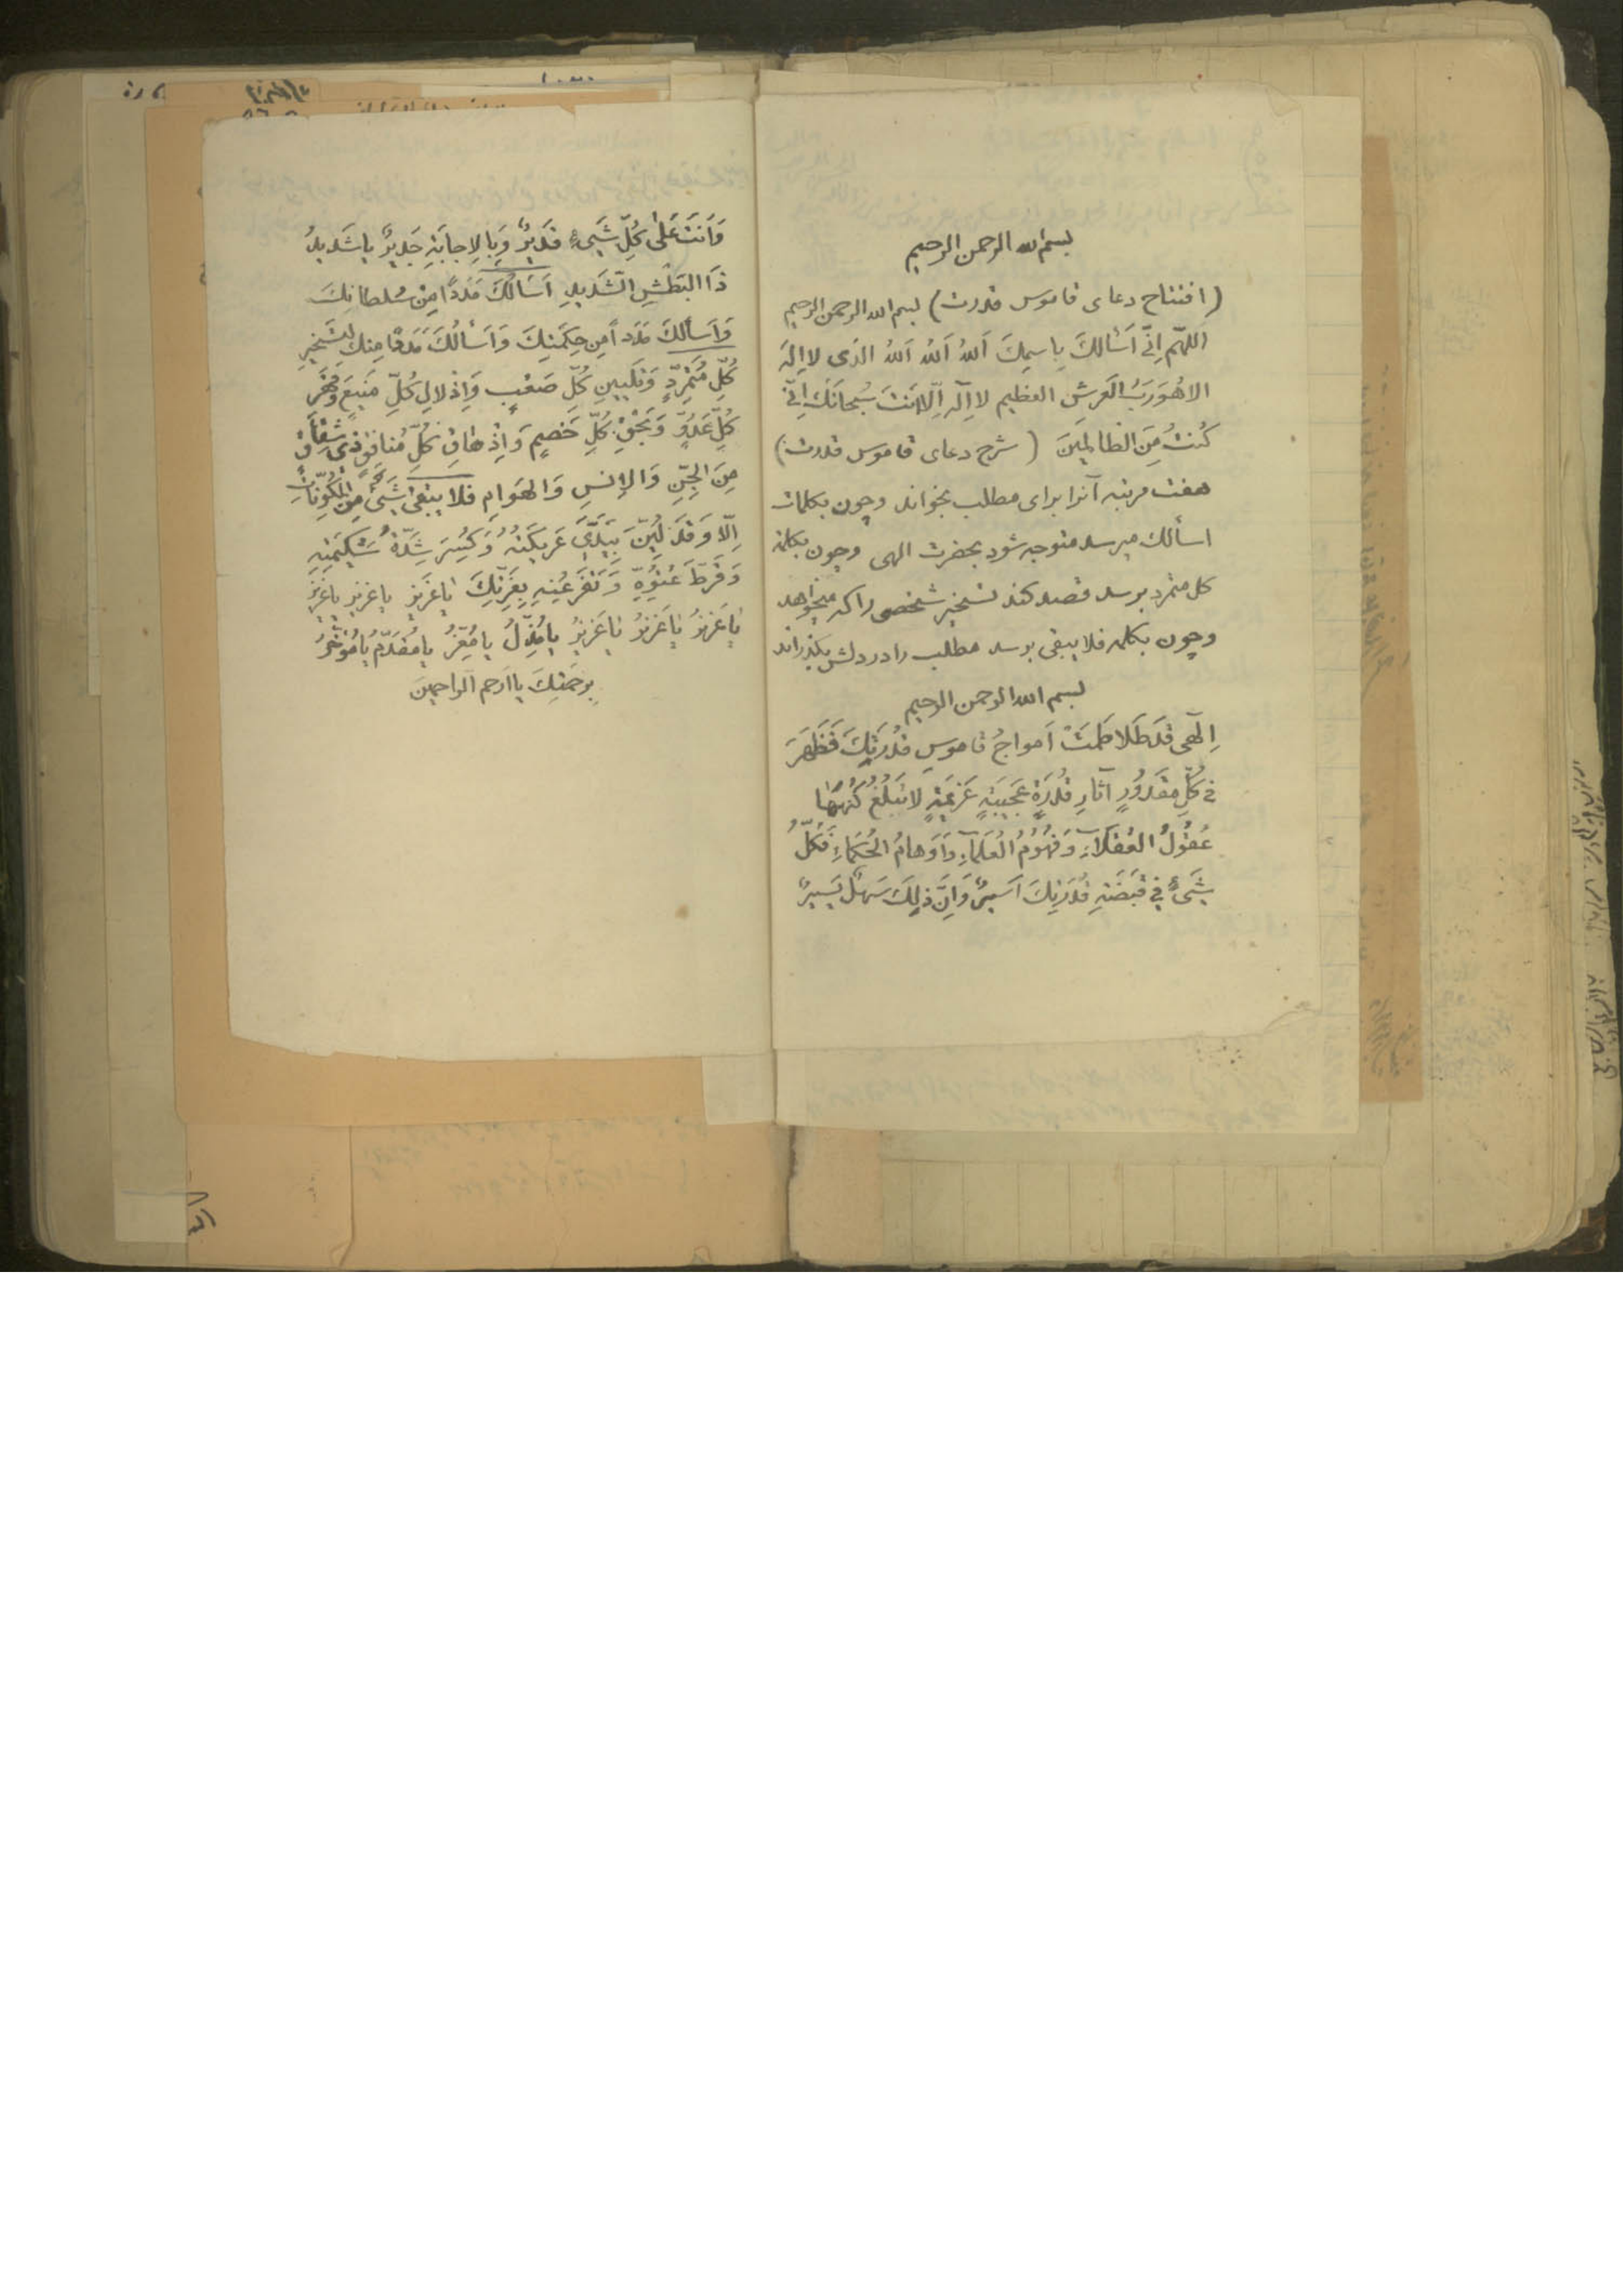 بسم الله الرحمن الرحیم
(افتتاح دعای قاموس قدرت) بسم الله الرحمن الرحیم
اللهم اِنّی اَسْالكَ بِاسمِكَ اَللهُ اَللهُ اَللهُ الذی لا اِلهَ
الا هُوَ رَبُ العَرش العظیم لا اِلهَ اِلّا اَنتَ سُبحانَكَ اِنّی
كُنتُ مِنَ الظالِمینَ (شرح دعای قاموس قدرت)
هفت مرتبه آنرا برای مطلب بخواند وچون بکلمات
اسألك میرسد متوجه شود بحضرت الهی وچون بکلمه
کل متمرد برسد قصد کند تسخیر شخصی را که میخواهد
وچون بکلمه فلا یبقی برسد مطلب را در دلش بگذراند
بسم الله الرحمن الرحیم
اِلهی قَد طَلاطَمَتْ اَمواجُ قاموسِ قُدرَتِكَ فَظَهَرَ
فی كُلِّ مَقدُورٍ آثارِ قُدرَةٍ عَجیبَةٍ لا تَبلُغُ كُنهَها
عُقُولُ العُقَلاءِ وَفُهُومُ العُلَماءِ وَاَوهامُ الحُكَماءِ فَكُلُّ
شَیءٍ فی قَبضَةِ قُدرَتِكَ اَسیرٌ وَاِنَّ ذلِكَ سَهلٌ یَسیرٌ
وَاَنتَ عَلی كُلِّ شَیءٍ قَدیرٌ وَبِالاِجابَةِ جَدیرٌ یا شَدیدُ
ذَا البَطْشِ الشَدیدِ اَسَالُكَ مَدَدًا مِنْ سُلطانِكَ
وَاَسألكَ مَدَداً مِن حِكمَتِكَ وَاَسْألُكَ مَدَدًا مِنكَ لِتَسْخیرِ
كُلِّ مُتَمَرِّدٍ وَتَلیینِ كُلِّ صَعْبٍ وَاِذلالِ كُلِّ مَنیعَ وَقَهْرِ
كُلِّ عَدُوٍّ كُلِّ خَصیمٍ كُلِّ مُنافِقٍ ذی شِقاقٍ
مِنَ الجِنِّ وَالاِنسِ وَالهَوامِ فَلا یَبقی شَیءٌ مِنَ المُكَوَّناتِ
اِلّا وَقَد لُیِّنَ عَریكَتُهُ وَكُسِرَ شِدَّةُ شَكیمَتِهِ
وَفَرطَ عُتُوِّهِ بِعِزَّتِكَ یا عَزیزُ یا عَزیزُ یا عَزیزُ
یا عَزیزُ یا عَزیزُ یا عَزیزُ یا مُذِلُّ یا مُعِزُّ یا مُقَدِّمُ یا مُؤَخِّرُ
بِرَحمَتِكَ یا اَرحم الراحمینَ